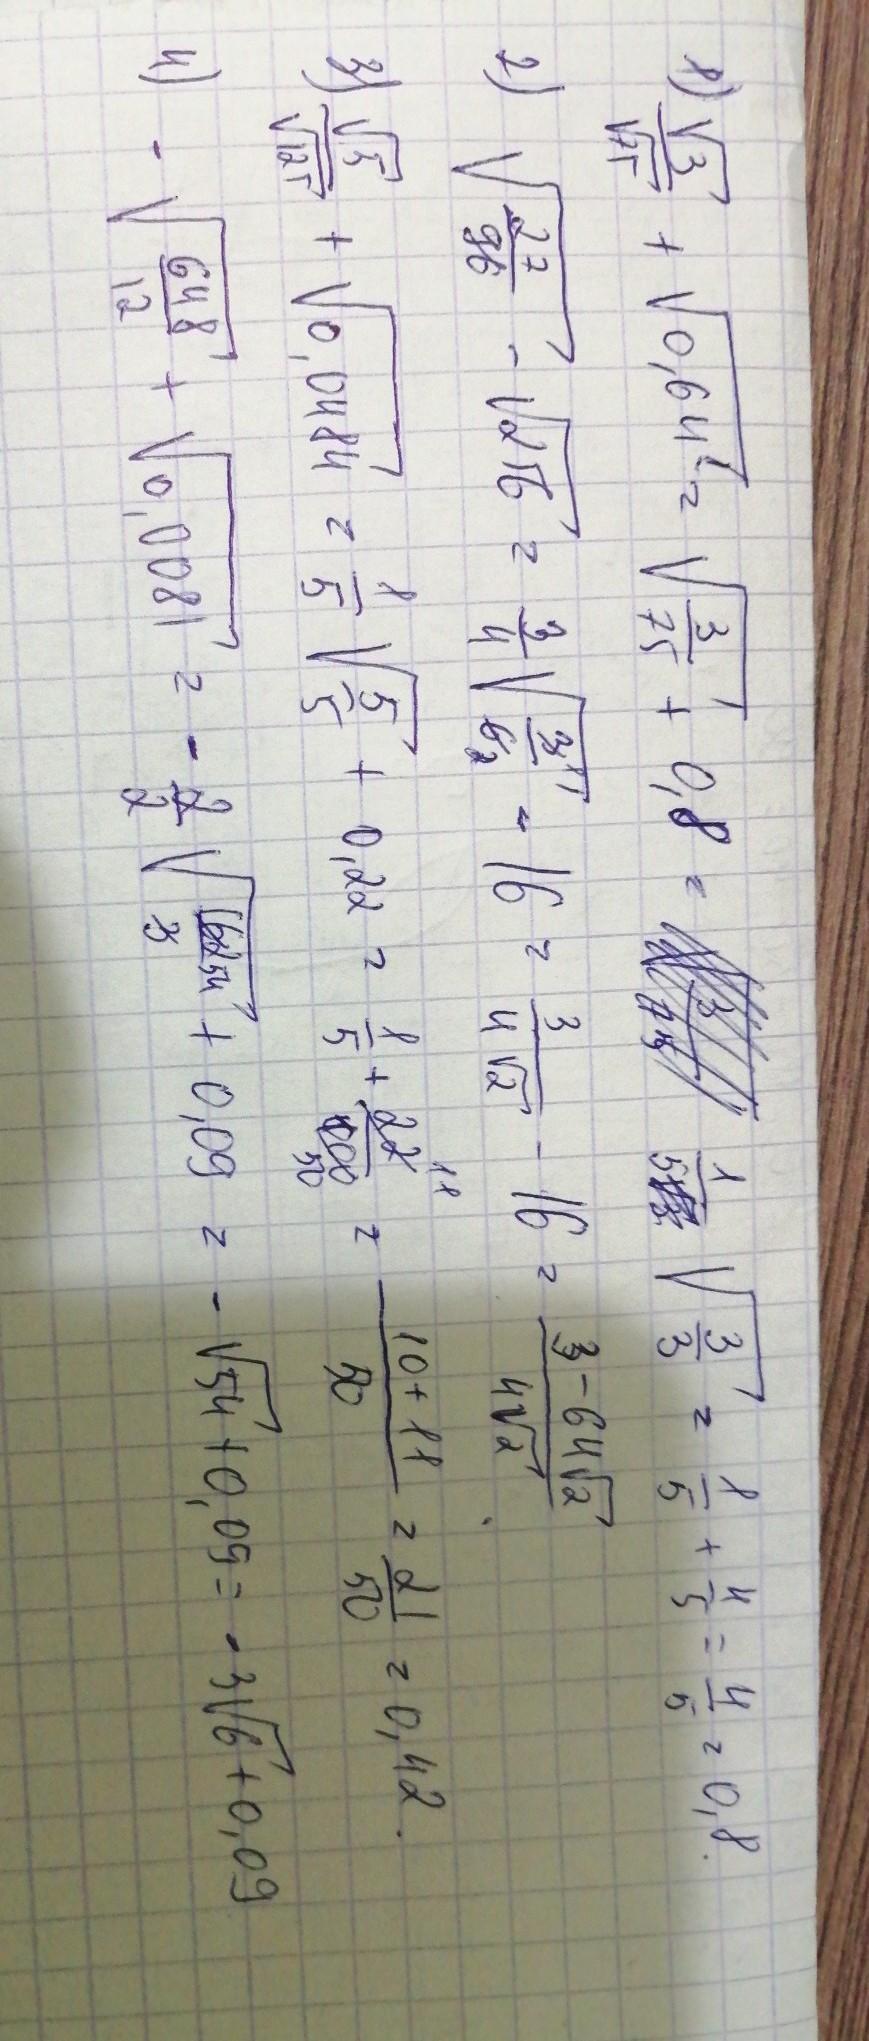 1) √3/√75 + √0,64 = √(3/75) + 0,8 = 1/5 √(3/3) = 1/5 + 4/5 = 4/5 = 0,8.
2) √(27/96) - √256 = 3/4 √(3/6) - 16 = 3/(4√2) - 16 = (3-64√2)/(4√2).
3) √5/√125 + √0,0484 = 1/5 √(5/5) + 0,22 = 1/5 + 22/100 = (10+11)/50 = 21/50 = 0,42.
4) - √(648/12) + √0,0081 = - 2/2 √(162/3) + 0,09 = - √54 + 0,09 = - 3√6 + 0,09